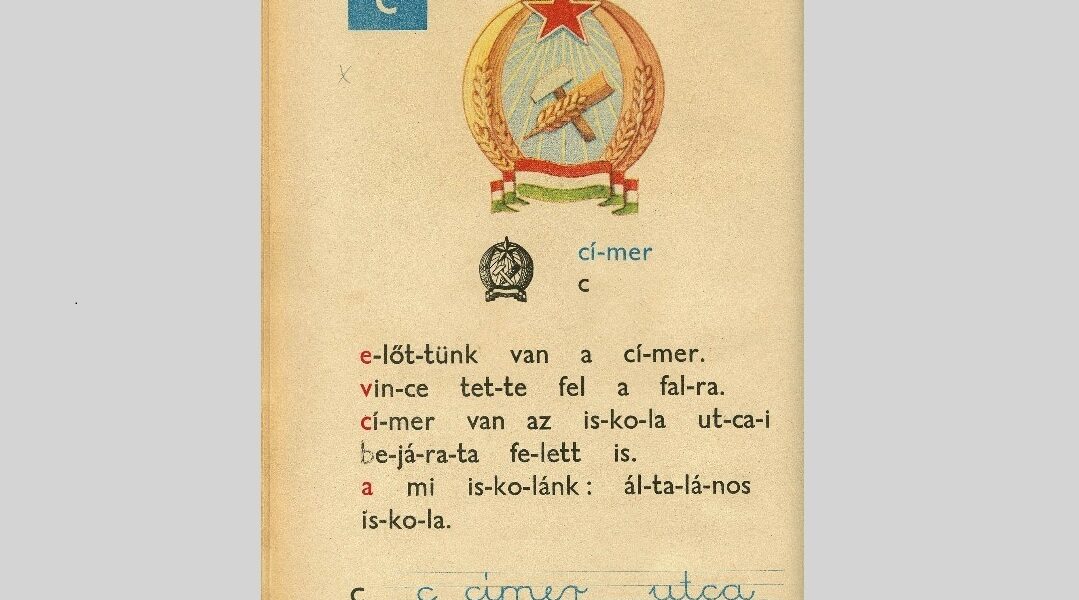 c
cí-mer
c
e-lőt-tünk van a cí-mer.
vin-ce tet-te fel a fal-ra.
cí-mer van az is-ko-la ut-ca-i
be-já-ra-ta fe-lett is.
a mi is-ko-lánk: ál-ta-lá-nos
is-ko-la.
c c címer utca